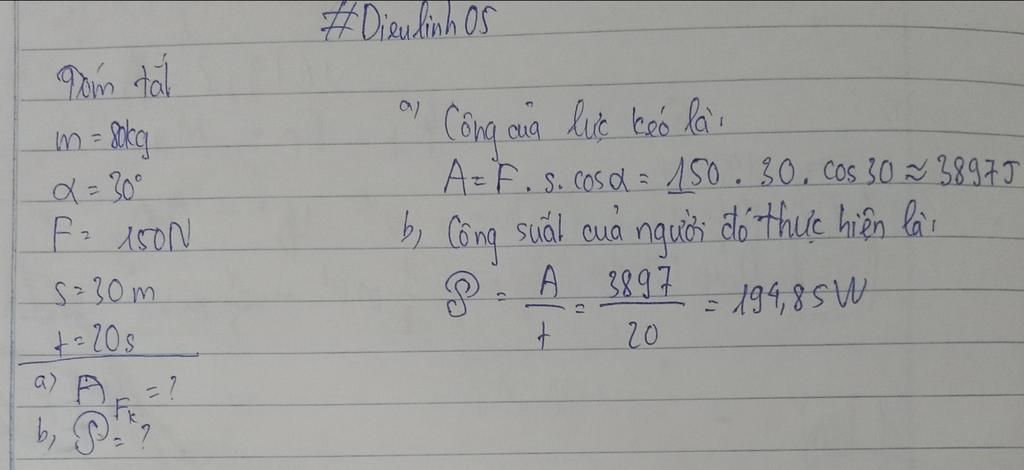 #Dieulinh05
Tóm tắt
m = 80kg
α = 30°
F = 150N
s = 30 m
t = 20s
a) A Fk = ?
b, P = ?
a) Công của lực kéo là:
A = F . s. cosα = 150 . 30. cos 30 ≈ 3897J
b, Công suất của người đó thực hiện là:
P = A / t = 3897 / 20 = 194,85W